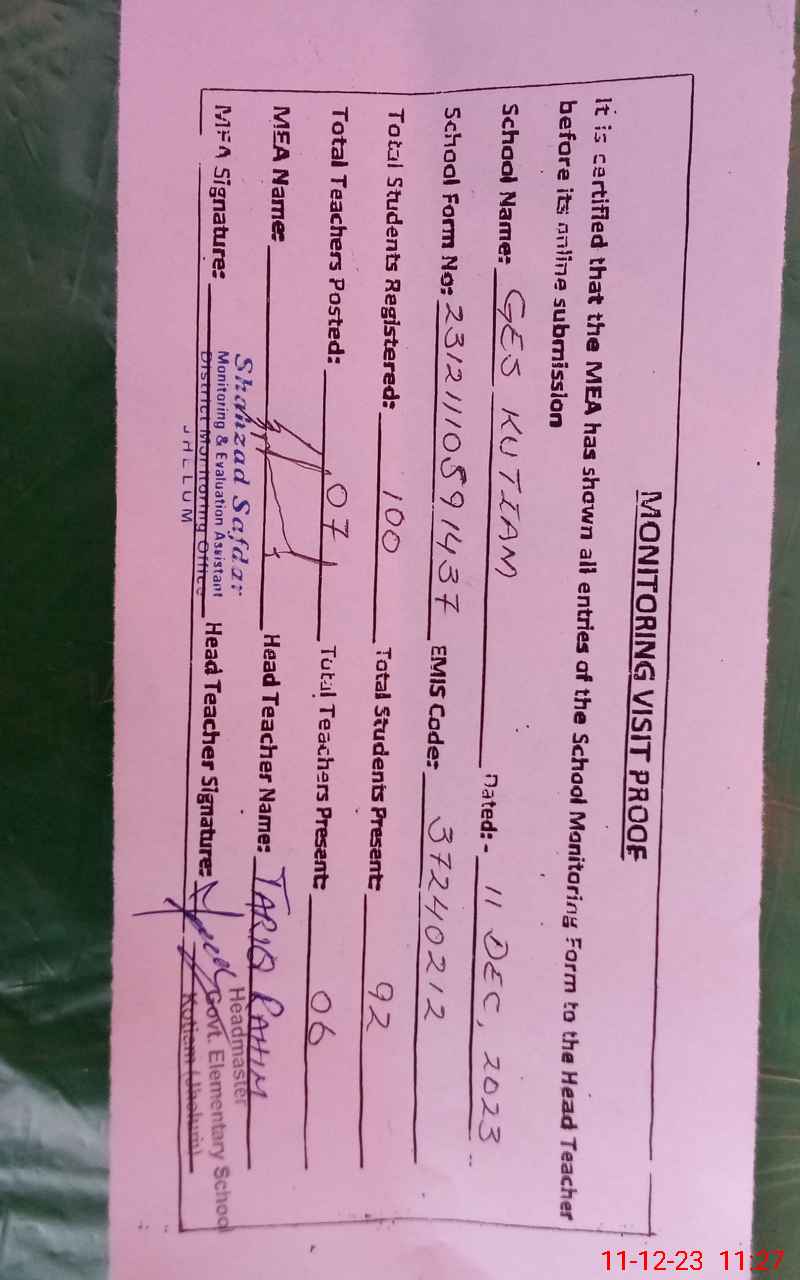 MONITORING VISIT PROOF
It is certified that the MEA has shown all entries of the School Monitoring Form to the Head Teacher
before its online submission
School Name: GES KUTIAM Dated:- 11 DEC, 2023
School Form No: 23121110591437 EMIS Code: 37240212
Total Students Registered: 100 Total Students Present: 92
Total Teachers Posted: 07 Total Teachers Present: 06
MEA Name: Head Teacher Name: TARIQ RAHIM
MEA Signature: Head Teacher Signature:
Shahzad Safdar
Monitoring & Evaluation Assistant
District Monitoring Office
JHELUM
Headmaster
Govt. Elementary School
Kutiam (Jhelum)
11-12-23 11:27